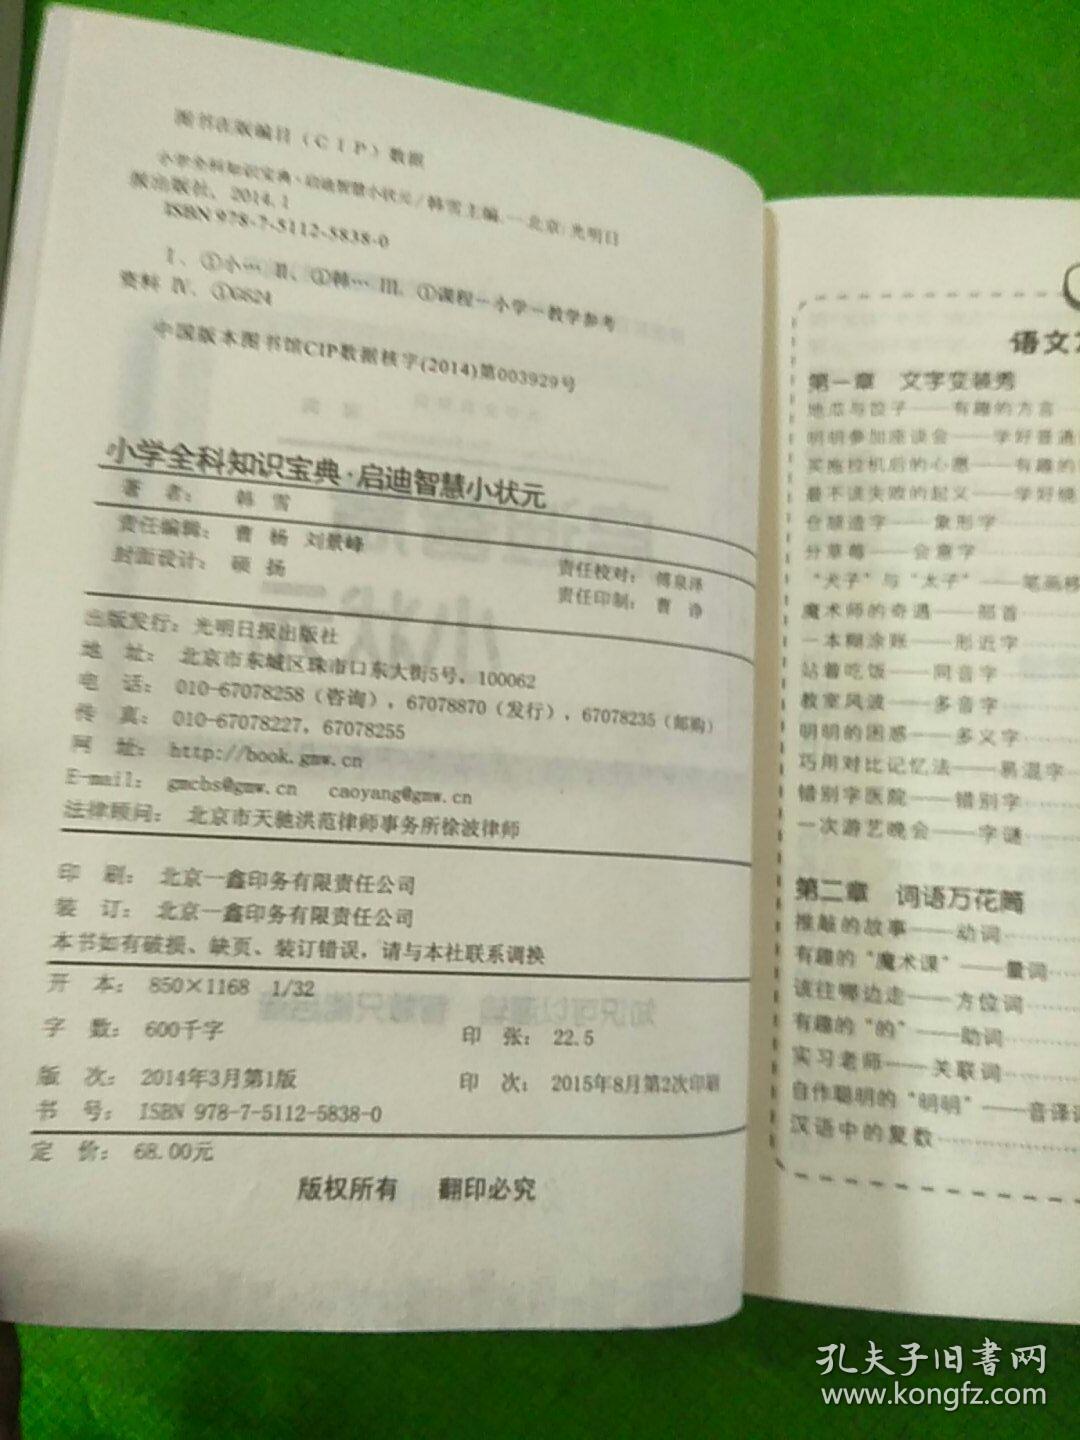 图书在版编目(CIP)数据
小学全科知识宝典·启迪智慧小状元/韩雪主编.—北京:光明日
报出版社, 2014.1
ISBN 978-7-5112-5838-0
Ⅰ、①小… Ⅱ、①韩… Ⅲ、①课程—小学—教学参考
资料 Ⅳ、①G624
中国版本图书馆CIP数据核字(2014)第003929号
小学全科知识宝典·启迪智慧小状元
著 者: 韩 雪
责任编辑: 曹 杨 刘景峰
责任校对: 傅泉泽
封面设计: 硕 扬
责任印制: 曹 诤
出版发行: 光明日报出版社
地 址: 北京市东城区珠市口东大街5号, 100062
电 话: 010-67078258(咨询), 67078870(发行), 67078235(邮购)
传 真: 010-67078227, 67078255
网 址: http://book.gmw.cn
E-mail: gmcbs@gmw.cn caoyang@gmw.cn
法律顾问: 北京市天驰洪范律师事务所徐波律师
印 刷: 北京一鑫印务有限责任公司
装 订: 北京一鑫印务有限责任公司
本书如有破损、缺页、装订错误, 请与本社联系调换
开 本: 850×1168 1/32
字 数: 600千字
印 张: 22.5
版 次: 2014年3月第1版
印 次: 2015年8月第2次印刷
书 号: ISBN 978-7-5112-5838-0
定 价: 68.00元
版权所有 翻印必究
语文
第一章 文字变装秀
地瓜与饺子——有趣的方言
明明参加座谈会——学好普通
买拖拉机后的心愿——有趣的
最不该失败的起义——学好
仓颉造字——象形字
分草莓——会意字
“犬子”与“太子”——笔画移
魔术师的奇遇——部首
一本糊涂账——形近字
站着吃饭——同音字
教室风波——多音字
明明的困惑——多义字
巧用对比记忆法——易混字
错别字医院——错别字
一次游艺晚会——字谜
第二章 词语万花筒
推敲的故事——动词
有趣的“魔术课”——量词
该往哪边走——方位词
有趣的“的”——助词
实习老师——关联词
自作聪明的“明明”——音译
汉语中的复数
孔夫子旧书网
www.kongfz.com